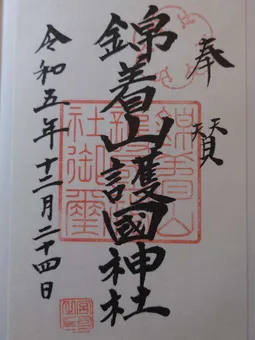 奉賛
錦着山護國神社
令和五年十二月二十四日
錦着山
護國神
社御璽